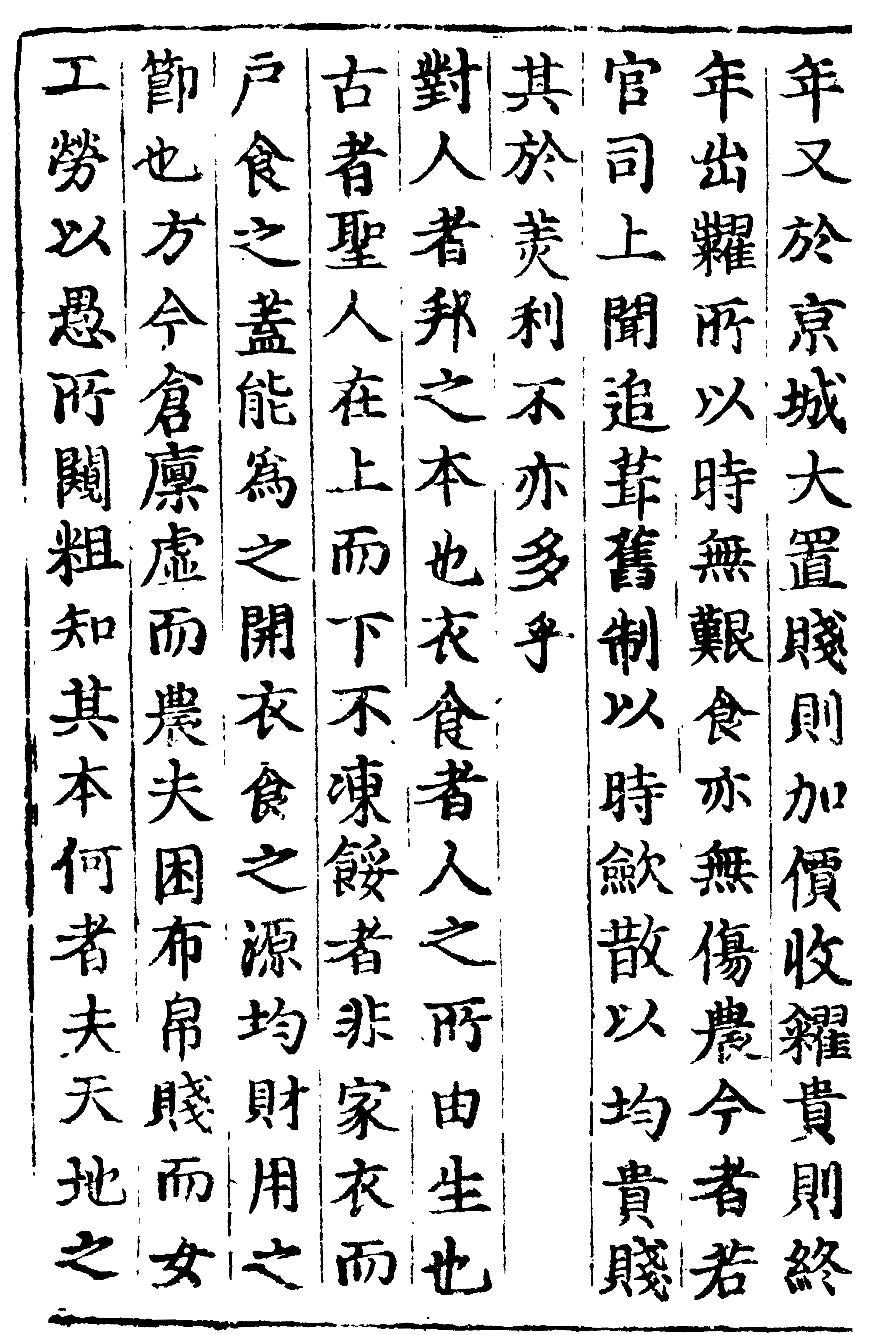 年又於京城大置賤則加價收糴貴則終
年出糶所以時無艱食亦無傷農今者若
官司上聞追葺舊制以時歛散以均貴賤
其於羙利不亦多乎
對人者邦之本也衣食者人之所由生也
古者聖人在上而下不凍餒者非家衣而
戶食之蓋能爲之開衣食之源均財用之
節也方今倉廩虛而農夫困布帛賤而女
工勞以愚所闚粗知其本何者夫天地之